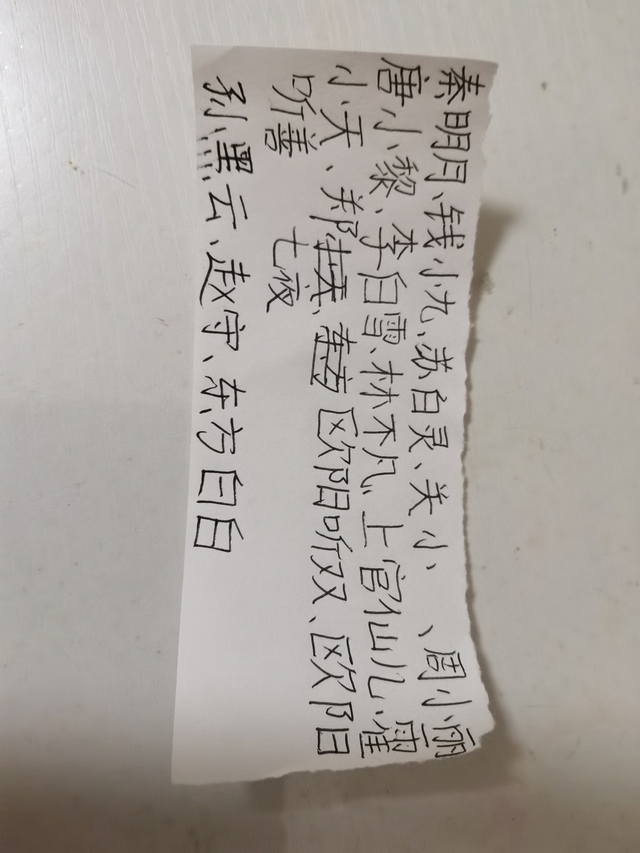 秦明月、钱小九、苏白灵、关小 、周小丽
唐小黎、李白雪、林不凡、上官仙儿、霍
小天、郑、欧阳听双、欧阳
听善 七夜
孙黑云、赵守、东方白白